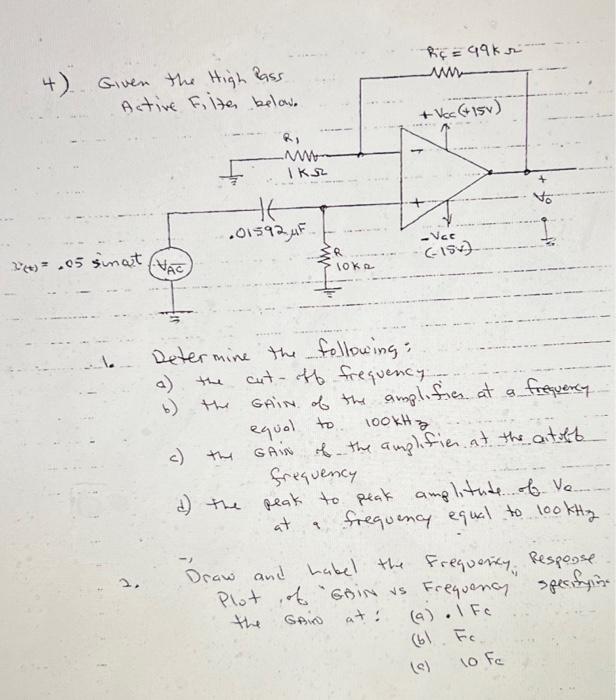 Rf = 99K Ω
4) Given the High Pass
Active Filter below.
+Vcc (+15V)
R1
1KΩ
-
+
+
Vo
.01592 µF
-Vcc
(-15V)
R
10KΩ
= .05 sin ωt
VAC
1. Determine the following:
a) the cut-off frequency
b) the GAIN of the amplifier at a frequency
equal to 100KHz
c) the GAIN of the amplifier at the cutoff
frequency
d) the peak to peak amplitude of Vo
at a frequency equal to 100KHz
2. Draw and Label the Frequency Response
Plot of "GAIN vs Frequency" specifying
the GAIN at: (a) .1 Fc
(b) Fc
(c) 10 Fc